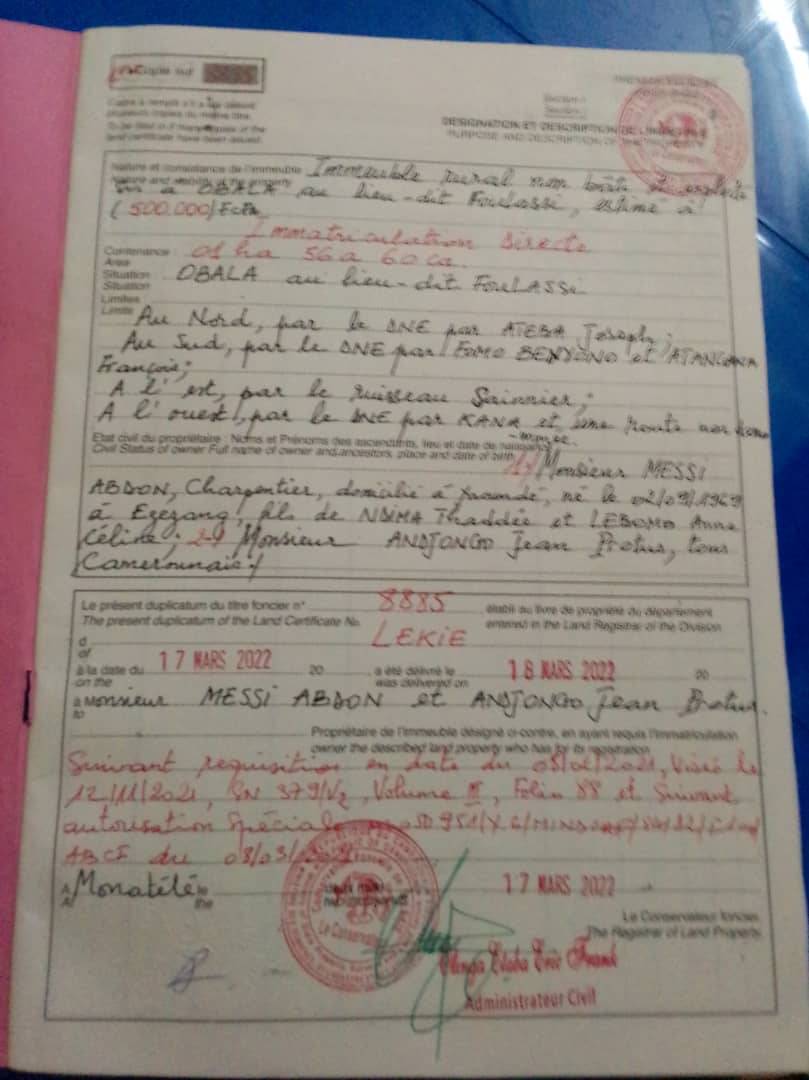 Copie sur
Cadre à remplir s'il a été délivré
plusieurs copies du même titre.
To be filled in if many copies of the
land certificate have been issued.
Section I
DESIGNATION ET DESCRIPTION DE L'IMMEUBLE
PURPOSE AND DESCRIPTION OF THE PROPERTY
Nature et consistance de l'immeuble Immeuble rural non bâti et exploité
Nature and property sis à OBALA au lieu-dit Foulassi, estimé à
(500.000) FCFA
Immatriculation Directe
Contenance 01 ha 56 a 60 ca.
Area
Situation OBALA au lieu-dit FoulASSi
Situation
Limites
Limits Au Nord, par le DNE par ATEBA Joseph;
Au Sud, par le DNE par FOMO BENYONO et ATANGANA
François;
A l'est, par le ruisseau
A l'ouest, par le DNE par KANA et une route non
Etat civil du propriétaire : Noms et Prénoms des ascendants, lieu et date de naissance
Civil Status of owner Full name of owner and ancestors, place and date of birth 1°/ Monsieur MESSI
ABDON, Charpentier, domicilié à Yaoundé, né le 02/09/1969
à Ezezang, fils de NDIMA Thaddée et LEBOMO Anne
Céline; 2°/ Monsieur ANDJONGO Jean Protus, tous
Camerounais./
Le présent duplicatum du titre foncier n° 8885 établi au livre de propriété du département
The present duplicatum of the Land Certificate No. entered in the Land Registrar of the Division
d LEKIE
of
à la date du 17 MARS 2022 20 a été délivré le 18 MARS 2022 20
on the was delivered on
à Monsieur MESSI ABDON et ANDJONGO Jean Protus.
to
Propriétaire de l'immeuble désigné ci-contre, en ayant requis l'immatriculation
owner the described land property who has for its registration
Suivant requisition en date du Visée le
12/11/2021, SN 379/V2, Volume II, Folio 88 et Suivant
autorisation Spéciale
ABCF du
A Monatélé le 17 MARS 2022
A the
Le Conservateur foncier
The Registrar of Land Property
Eric Frank
Administrateur Civil